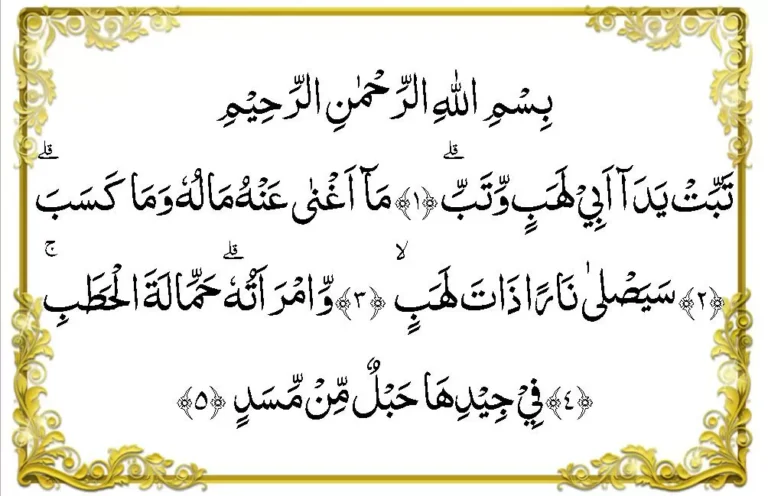 بِسْمِ اللهِ الرَّحْمٰنِ الرَّحِيْمِ
تَبَّتْ يَدَآ اَبِيْ لَهَبٍ وَّتَبَّ ۗ ﴿١﴾ مَآ اَغْنٰى عَنْهُ مَالُهٗ وَمَا كَسَبَ ۗ
﴿٢﴾ سَيَصْلٰى نَارًا ذَاتَ لَهَبٍ ۙ ﴿٣﴾ وَّامْرَاَتُهٗ ۗ حَمَّالَةَ الْحَطَبِ ۚ
﴿٤﴾ فِيْ جِيْدِهَا حَبْلٌ مِّنْ مَّسَدٍ ﴿٥﴾